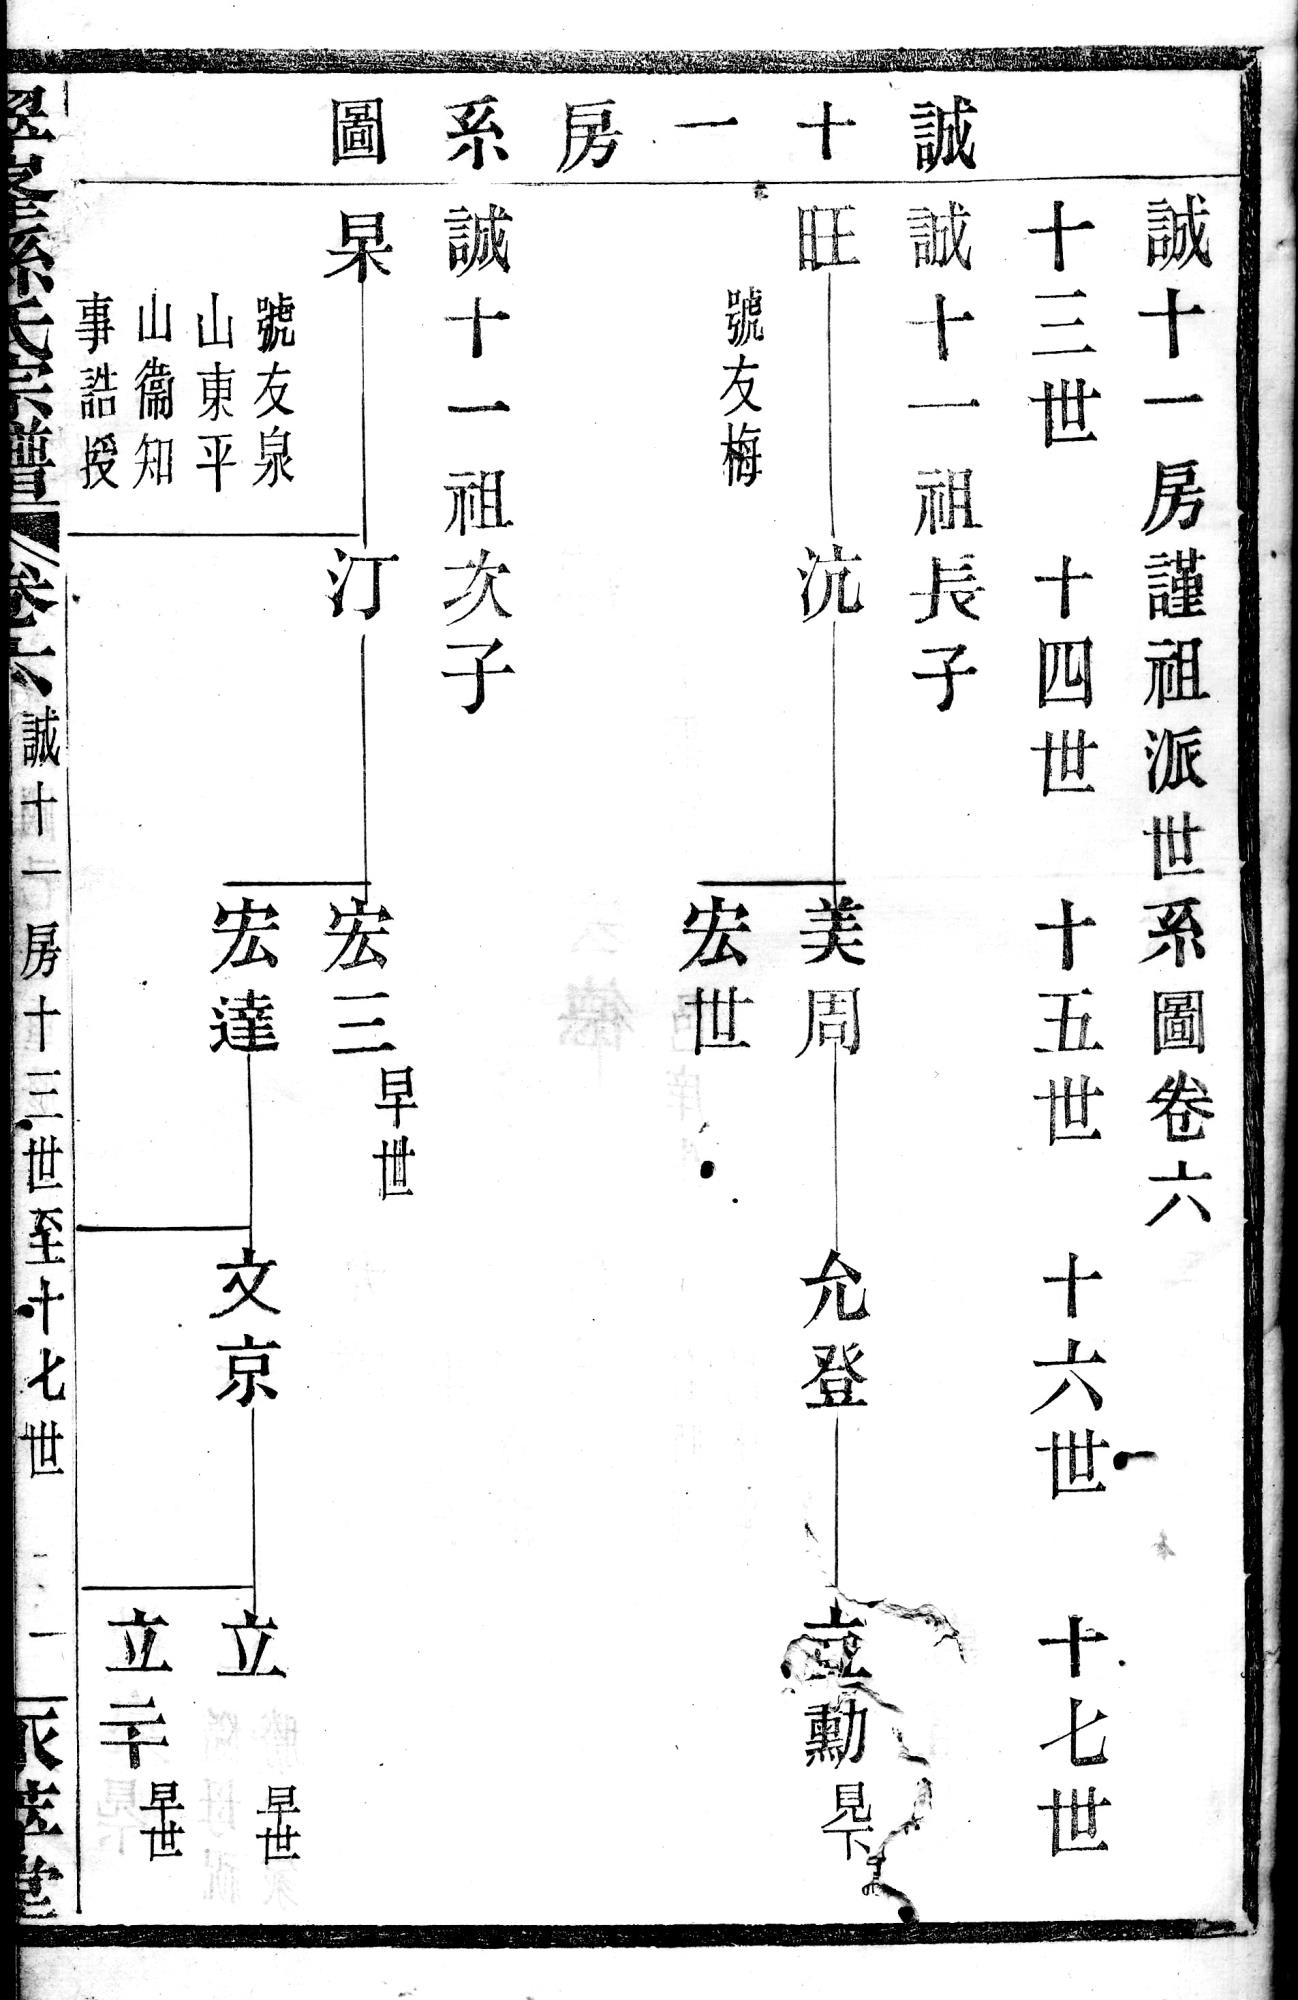 誠十一房系圖
誠十一房謹祖派世系圖卷六
十三世 十四世 十五世 十六世 十七世
誠十一祖長子
旺 沆 美周 允登 立勳 見下
號友梅
宏世
誠十一祖次子
杲 汀 宏三 早世
號友泉
山東平
山衞知
事誥授
宏達 文京 立 早世
立二 早世
孫氏宗譜 卷六 誠十一房十三世至十七世 一